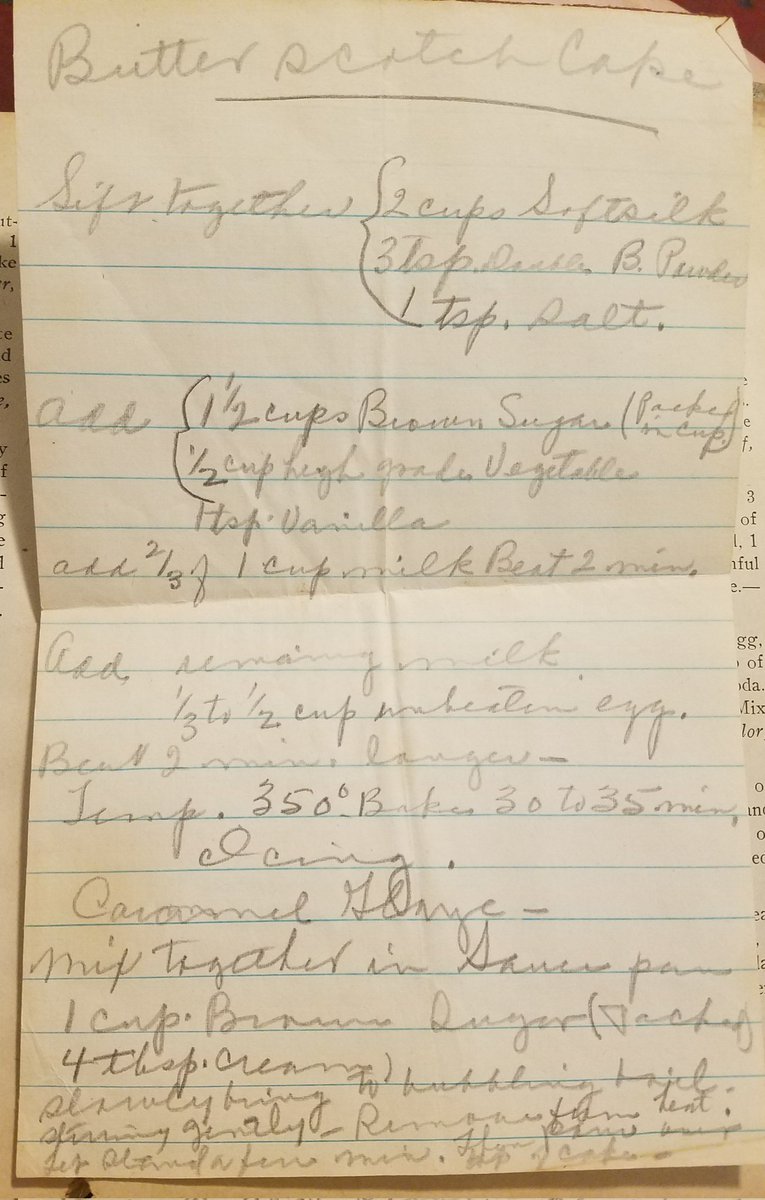 Butter scotch Cake
Sift together { 2 cups Softsilk
3 tsp. Double B. Powder
1 tsp. Salt.
Add { 1 1/2 cups Brown Sugar (Packed in cup)
1/2 cup high grade Vegetable
1 tsp. Vanilla
add 2/3 of 1 cup milk Beat 2 min.
Add remaing milk
1/3 to 1/2 cup unbeaten egg.
Beat 2 min. longer —
Temp. 350° Bake 30 to 35 min.
Icing.
Caramel Glaze —
Mix together in Sauce pan
1 cup. Brown Sugar (Packed)
4 tbsp. Cream
slowly bring to bubbling boil.
stirring gently — Remove from heat.
let stand a few min. Then pour over
top of cake —